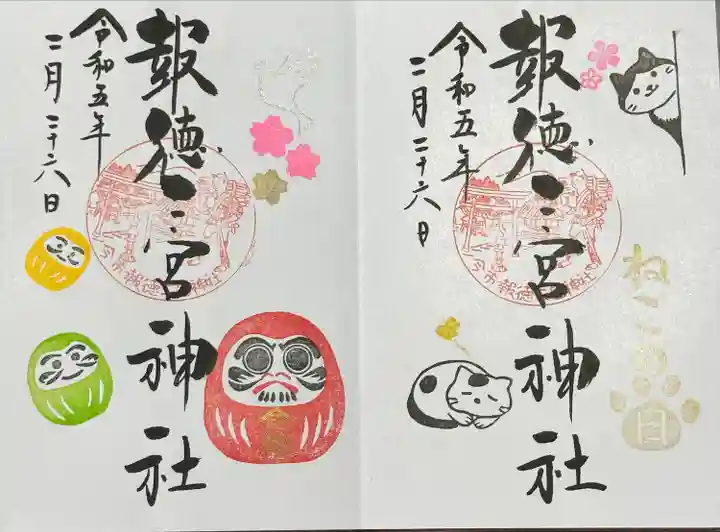 報徳二宮神社
令和五年
二月二十六日
報徳二宮神社
令和五年
二月二十六日
ねこの日